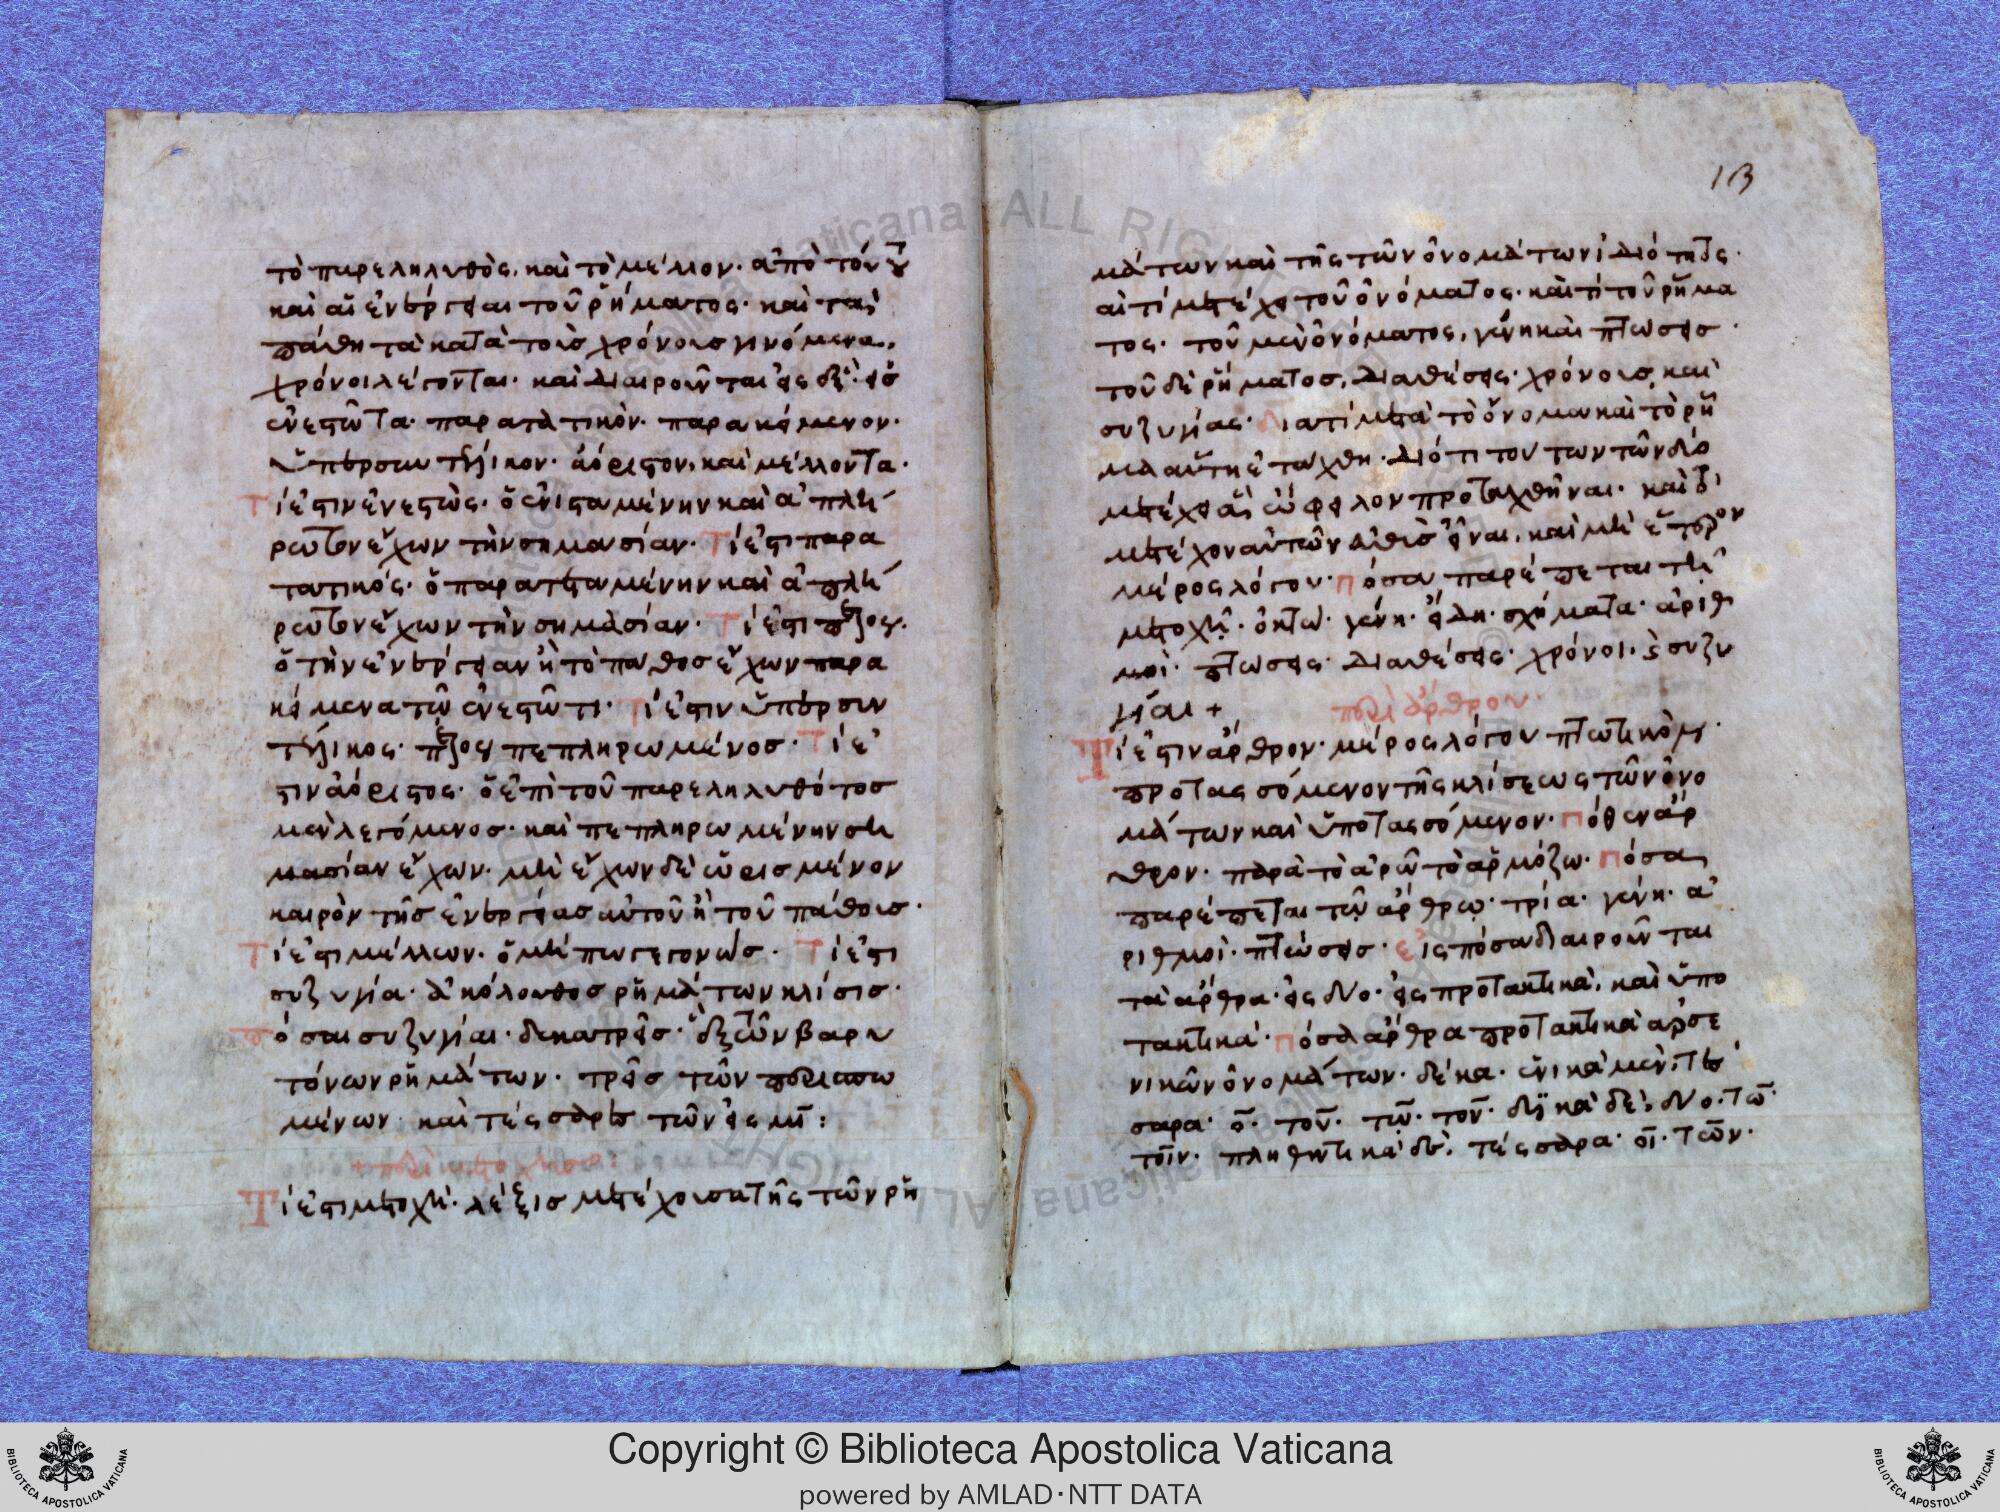 τὸ παρεληλυθὸς, καὶ τὸ μέλλον· ἀπὸ τούτου
καὶ αἱ ἐνέργειαι τοῦ ῥήματος· καὶ τὰ
πάθη τὰ κατὰ τοὺς χρόνους γινόμενα,
χρόνοι λέγονται· καὶ διαιροῦνται εἰς
ἐνεστῶτα· παρατατικὸν· παρακείμενον·
ὑπερσυντέλικον· ἀόριστον, καὶ μέλλοντα·
Τί ἐστιν ἐνεστώς· ὁ ἐνισταμένην καὶ ἀπλή
ρωτον ἔχων τὴν σημασίαν· Τί ἐστι παρα
τατικός· ὁ παρατεταμένην καὶ ἀπλή
ρωτον ἔχων τὴν σημασίαν· Τί ἐστι
ὁ τὴν ἐνέργειαν ἢ τὸ πάθος ἔχων παρα
κείμενα τῶ ἐνεστῶτι· Τί ἐστιν ὑπερσυν
τέλικος· πεπληρωμένος· Τί ἐ
στιν ἀόριστος· ὁ ἐπὶ τοῦ παρεληλυθότος
μὲν λεγόμενος· καὶ πεπληρωμένην ση
μασίαν ἔχων· μὴ ἔχων δὲ ὡρισμένον
καιρὸν τῆς ἐνεργείας αὐτοῦ ἢ τοῦ πάθους·
Τί ἐστι μέλλων· ὁ μήπω γεγονώς· Τί ἐστι
συζυγία· ἀκόλουθος ῥημάτων κλίσις·
Πόσαι συζυγίαι· δεκατρεῖς· ἓξ τῶν βαρυ
τόνων ῥημάτων· τρεῖς τῶν περισπω
μένων· καὶ τέσσαρες τῶν εἰς μι:
+ περὶ μετοχῆς:
Τί ἐστι μετοχή· λέξις μετέχουσα τῆς τῶν ῥη
13
μάτων καὶ τῆς τῶν ὀνομάτων ἰδιότητος·
τί μετέχει τοῦ ὀνόματος· καὶ τί τοῦ ῥήμα
τος· τοῦ μὲν ὀνόματος, γένη καὶ πτώσεις·
τοῦ δὲ ῥήματος, διαθέσεις· χρόνους, καὶ
συζυγίας· Διατί μετὰ τὸ ὄνομα καὶ τὸ ῥῆ
μα αὕτη ἐτάχθη· Διότι τούτων τῶν δύο
μετέχει ὤφειλον προταχθῆναι· καὶ
μετέχον αὐτῶν εὐθὺς εἶναι, καὶ μὴ ἕτερον
μέρος λόγου· Πόσα παρέπεται τῆ
μετοχῆ· ὀκτώ· γένη· εἴδη· σχήματα· ἀριθ
μοὶ· πτώσεις· διαθέσεις· χρόνοι· συζυ
γίαι +
περὶ ἄρθρου·
Τί ἐστιν ἄρθρον· μέρος λόγου πτωτικὸν·
προτασσόμενον τῆς κλίσεως τῶν ὀνο
μάτων καὶ ὑποτασσόμενον· Πόθεν ἄρ
θρον· παρὰ τὸ ἀρῶ τὸ ἁρμόζω· Πόσα
παρέπεται τῶ ἄρθρω· τρία· γένη· ἀ
ριθμοὶ· πτώσεις· Εἰς πόσα διαιροῦνται
τὰ ἄρθρα· εἰς δύο· εἰς προτακτικὰ, καὶ ὑπο
τακτικά· Πόσα ἄρθρα προτακτικὰ ἀρσε
νικῶν ὀνομάτων· δέκα· ἑνικὰ μὲν, τέσ
σαρα· ὁ· τοῦ· τῷ· τὸν· δυϊκὰ δὲ, δύο· τὼ·
τοῖν· πληθυντικὰ δὲ, τέσσαρα· οἱ· τῶν·
Copyright © Biblioteca Apostolica Vaticana
powered by AMLAD·NTT DATA